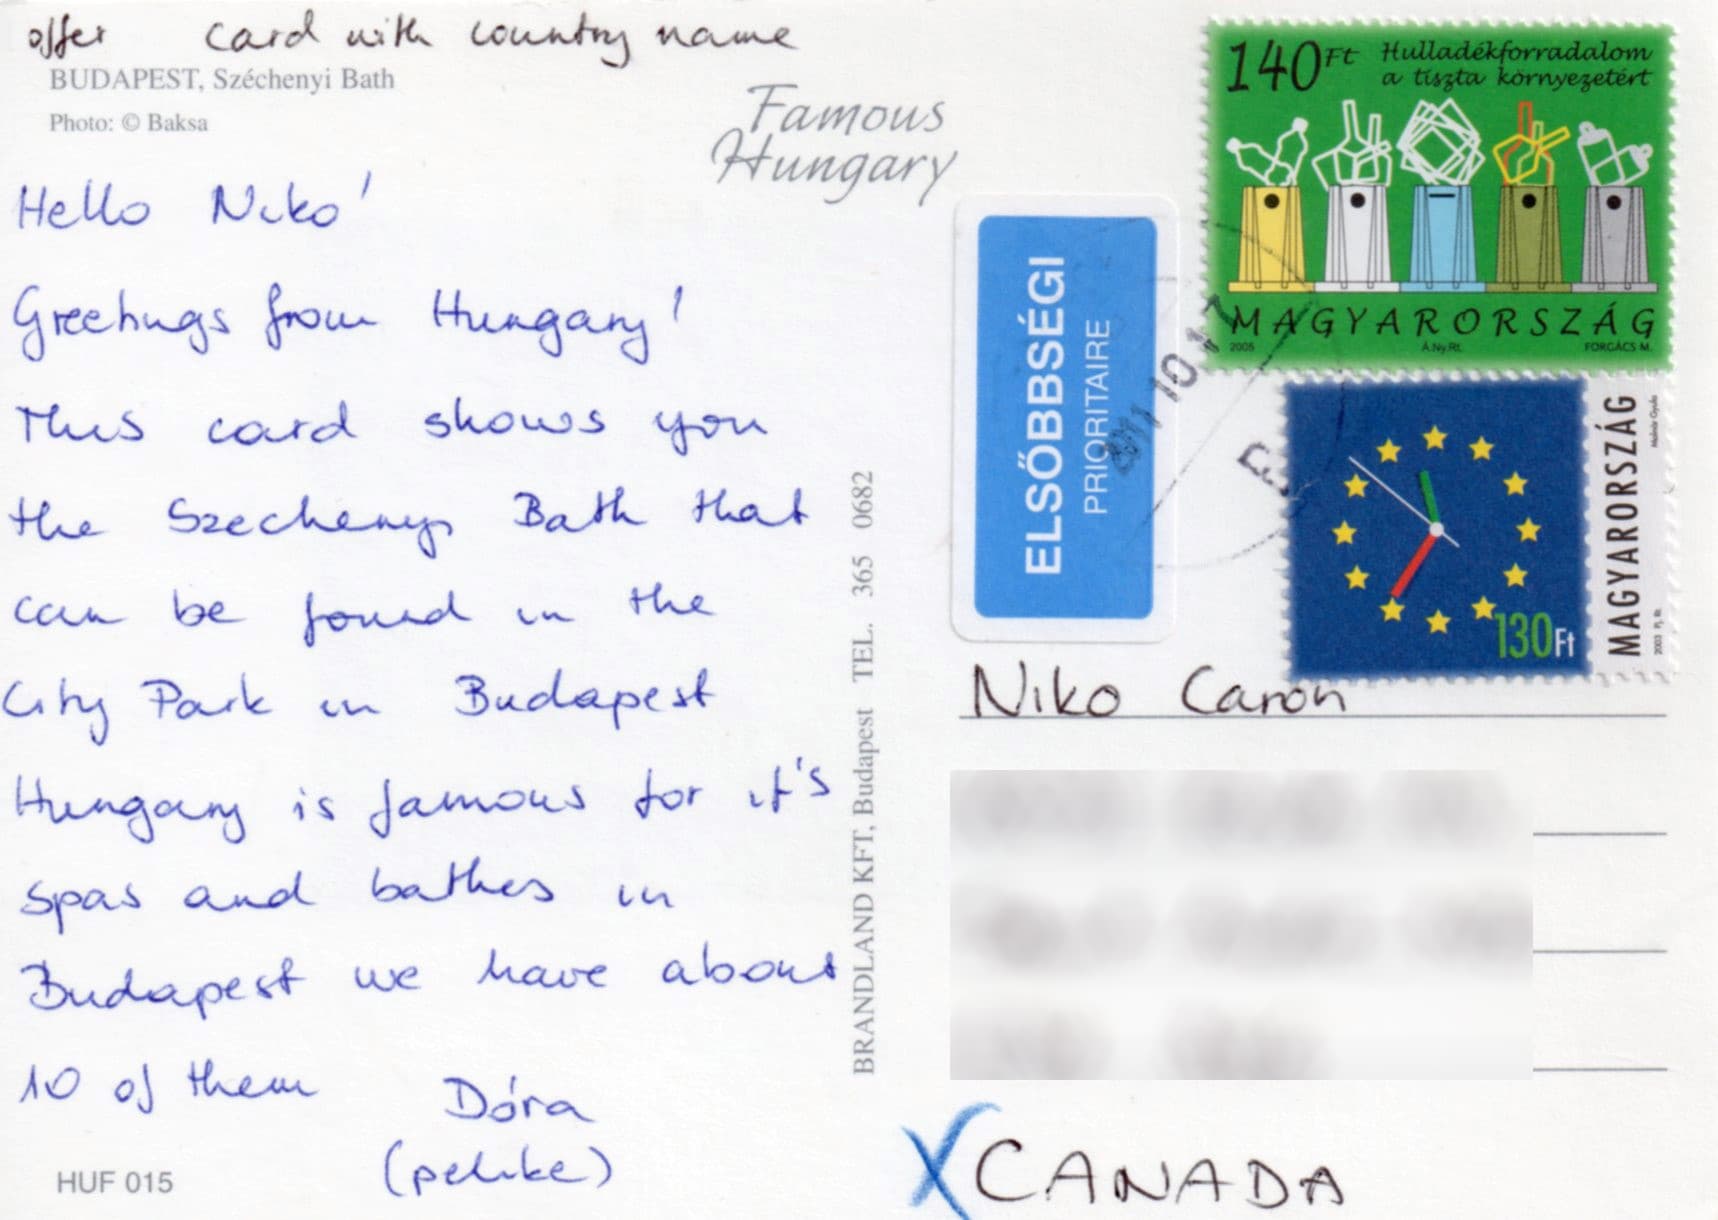 offer card with country name
BUDAPEST, Széchenyi Bath
Photo: © Baksa
Famous
Hungary
Hello Niko!
Greetings from Hungary!
This card shows you
the Szechenyi Bath that
can be found in the
City Park in Budapest
Hungary is famous for it's
spas and bathes in
Budapest we have about
10 of them
Dóra
(pelike)
HUF 015
BRANDLAND KFT, Budapest TEL. 365 0682
ELSŐBBSÉGI
PRIORITAIRE
2011 10.17
140Ft Hulladékforradalom
a tiszta környezetért
MAGYARORSZÁG
2005 Á.Ny.Rt. FORGÁCS M.
130Ft
MAGYARORSZÁG
Molnár Gyula
2003 Pj. Rt.
Niko Caron
CANADA